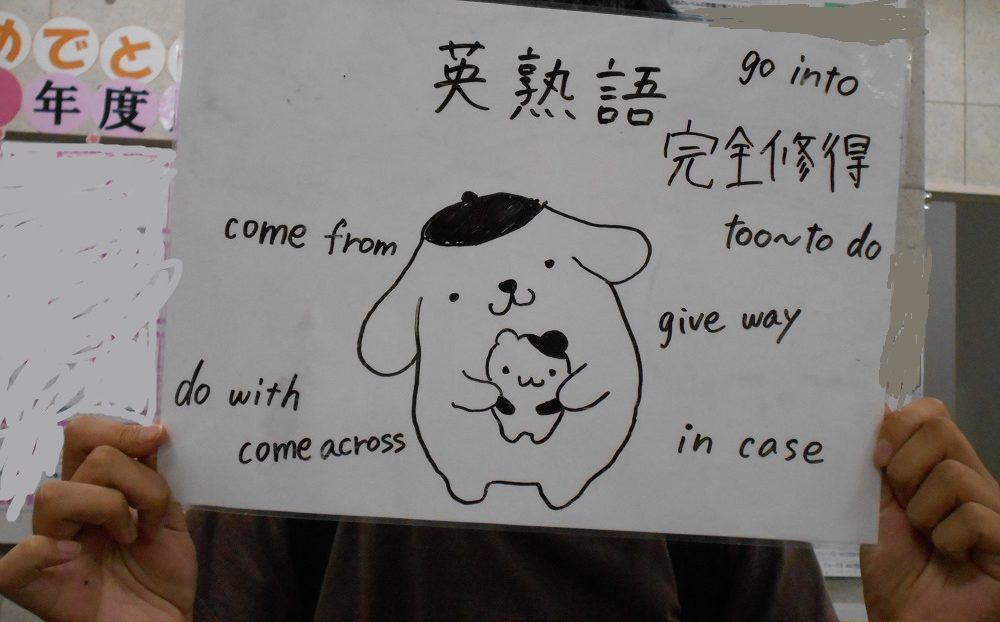 めでと
年度
英熟語
go into
完全修得
come from
too~to do
give way
do with
come across
in case